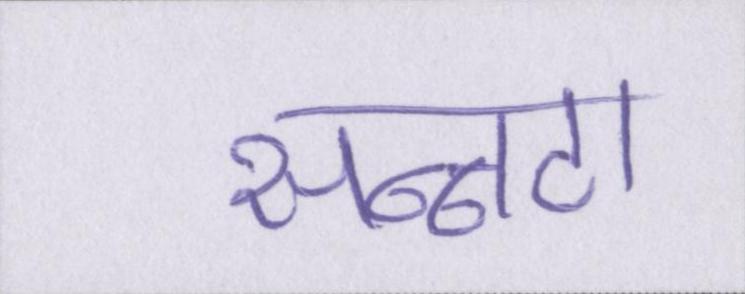 सन्नटा